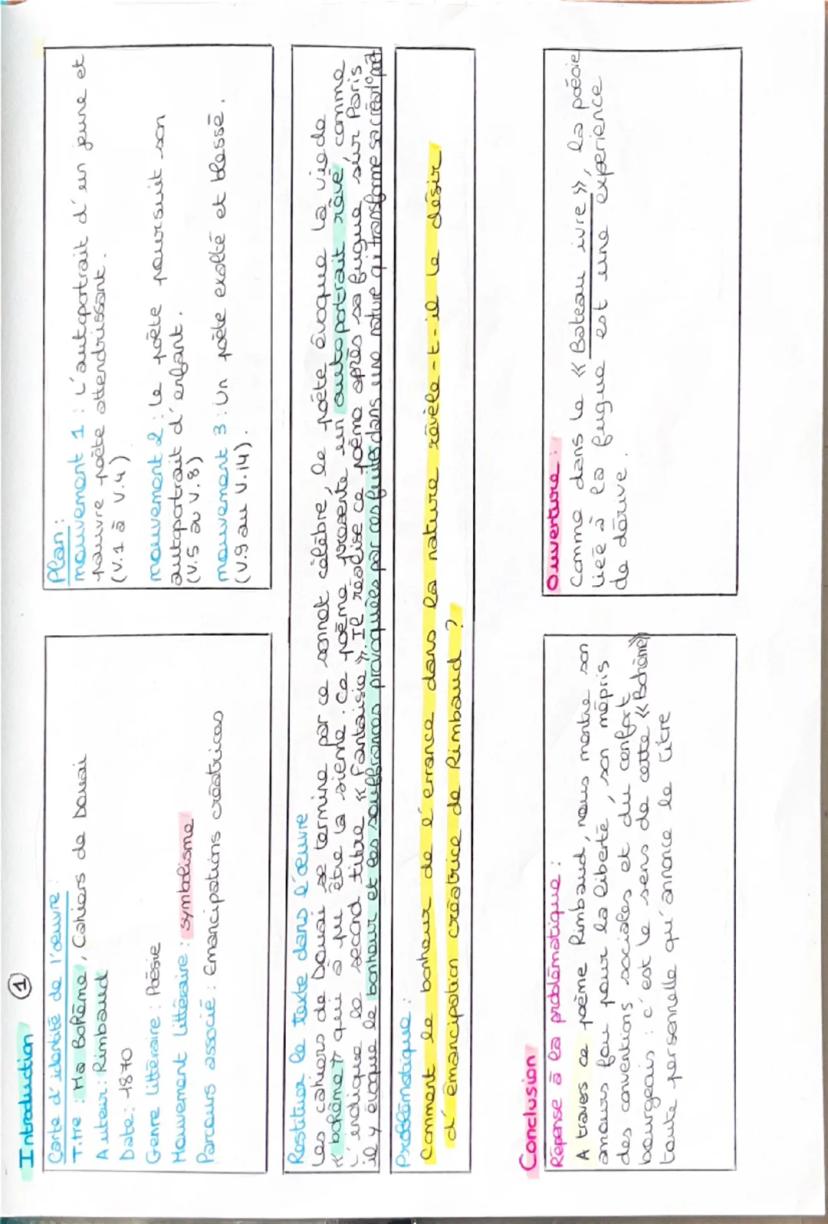 Introduction ①
Carte d'identité de l'œuvre :
Titre : Ma Bohême, Cahiers de Douai
Auteur : Rimbaud
Date : 1870
Genre littéraire : Poésie
Mouvement littéraire : symbolisme
Parcours associé : Emancipations créatrices
Plan :
mouvement 1 : L'autoportrait d'un jeune et
pauvre poète attendrissant.
(V.1 à V.4)
mouvement 2 : le poète poursuit son
autoportrait d'enfant.
(V.5 au V.8)
mouvement 3 : Un poète exalté et blessé.
(V.9 au V.14).
Restituer le texte dans l'œuvre
Les cahiers de Douai se termine par ce sonnet célèbre, le poète évoque la vie de
« bohème » qui à pu être la sienne. Ce poème présente un autoportrait rêvé, comme
l'indique le second titre « Fantaisie ». Il réalise ce poème après sa fugue sur Paris
il y évoque le bonheur et les souffrances provoquées par ces fuites dans une nature qui transforme sa création
Problématique :
Comment le bonheur de l'errance dans la nature révèle-t-il le désir
d'émancipation créatrice de Rimbaud ?
Conclusion
Réponse à la problématique :
A travers ce poème Rimbaud, nous montre son
amour fou pour la liberté, son mépris
des conventions sociales et du confort
bourgeois : c'est le sens de cette « Bohème »
toute personnelle qu'annonce le titre
Ouverture :
Comme dans le « Bateau ivre », la poésie
liée à la fugue est une expérience
de dérive.